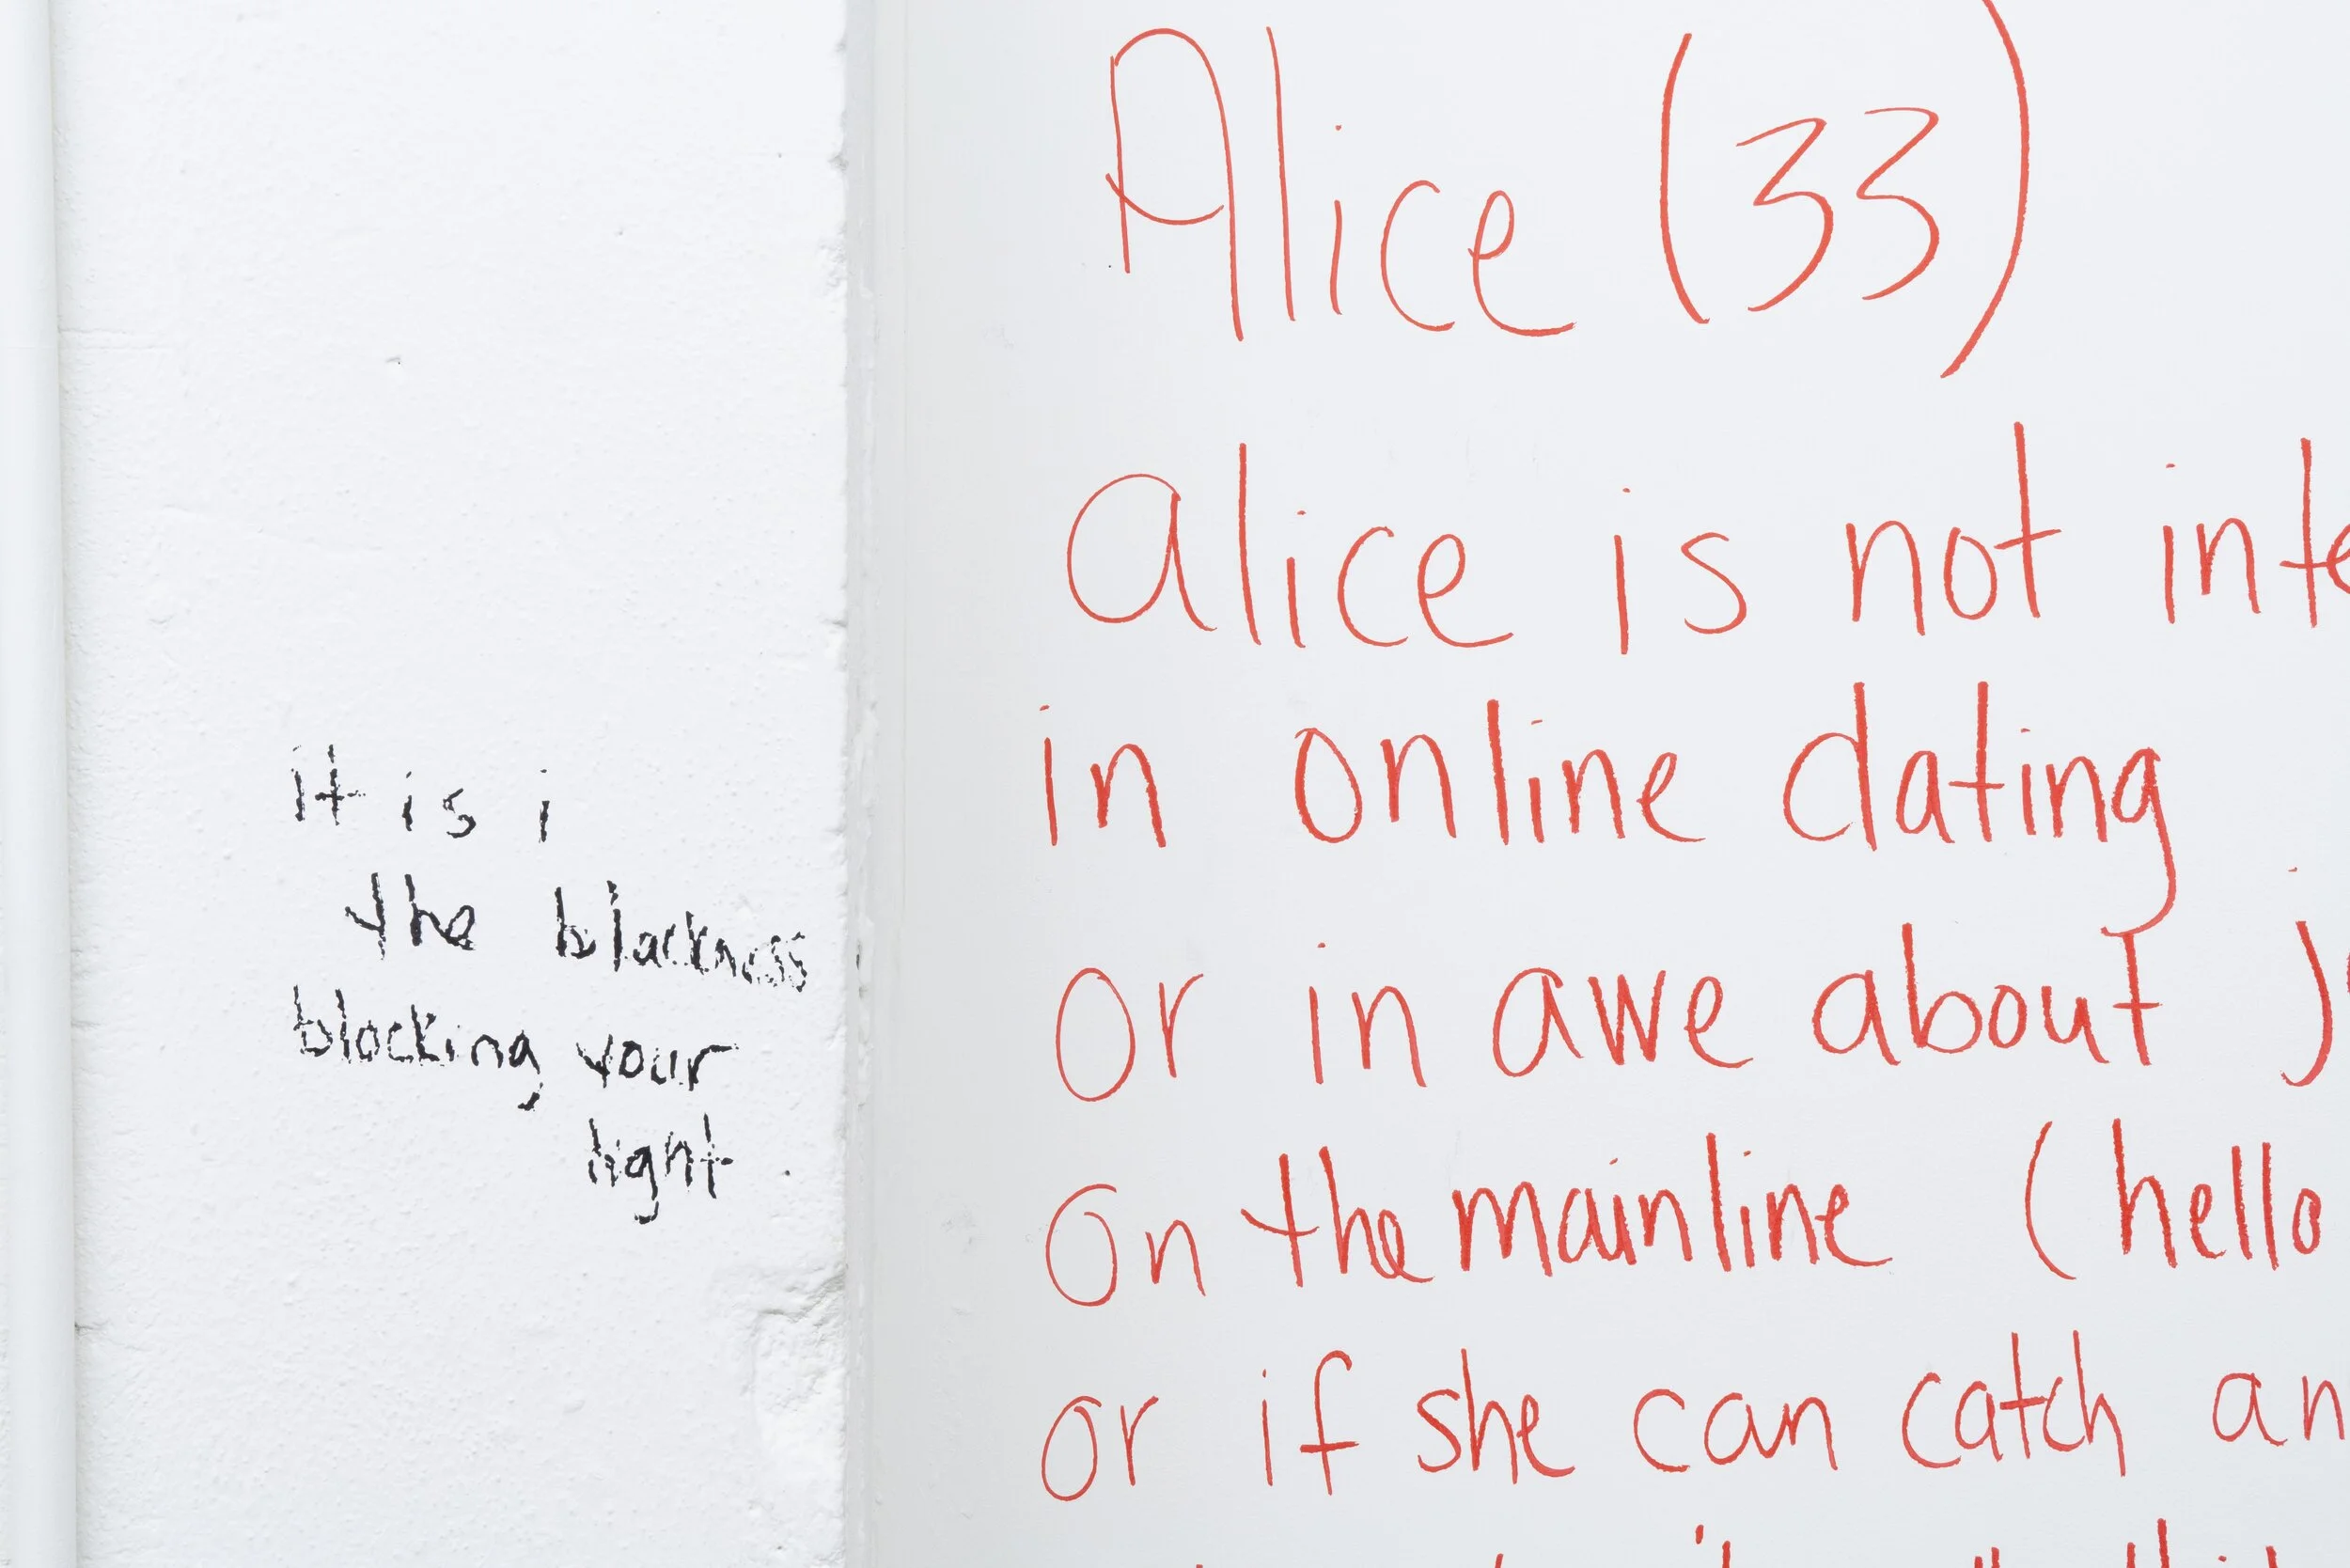 it is i
the blackness
blocking your
light.
Alice (33)
alice is not inte
in online dating
or in awe about j
on the mainline (hello
or if she can catch an